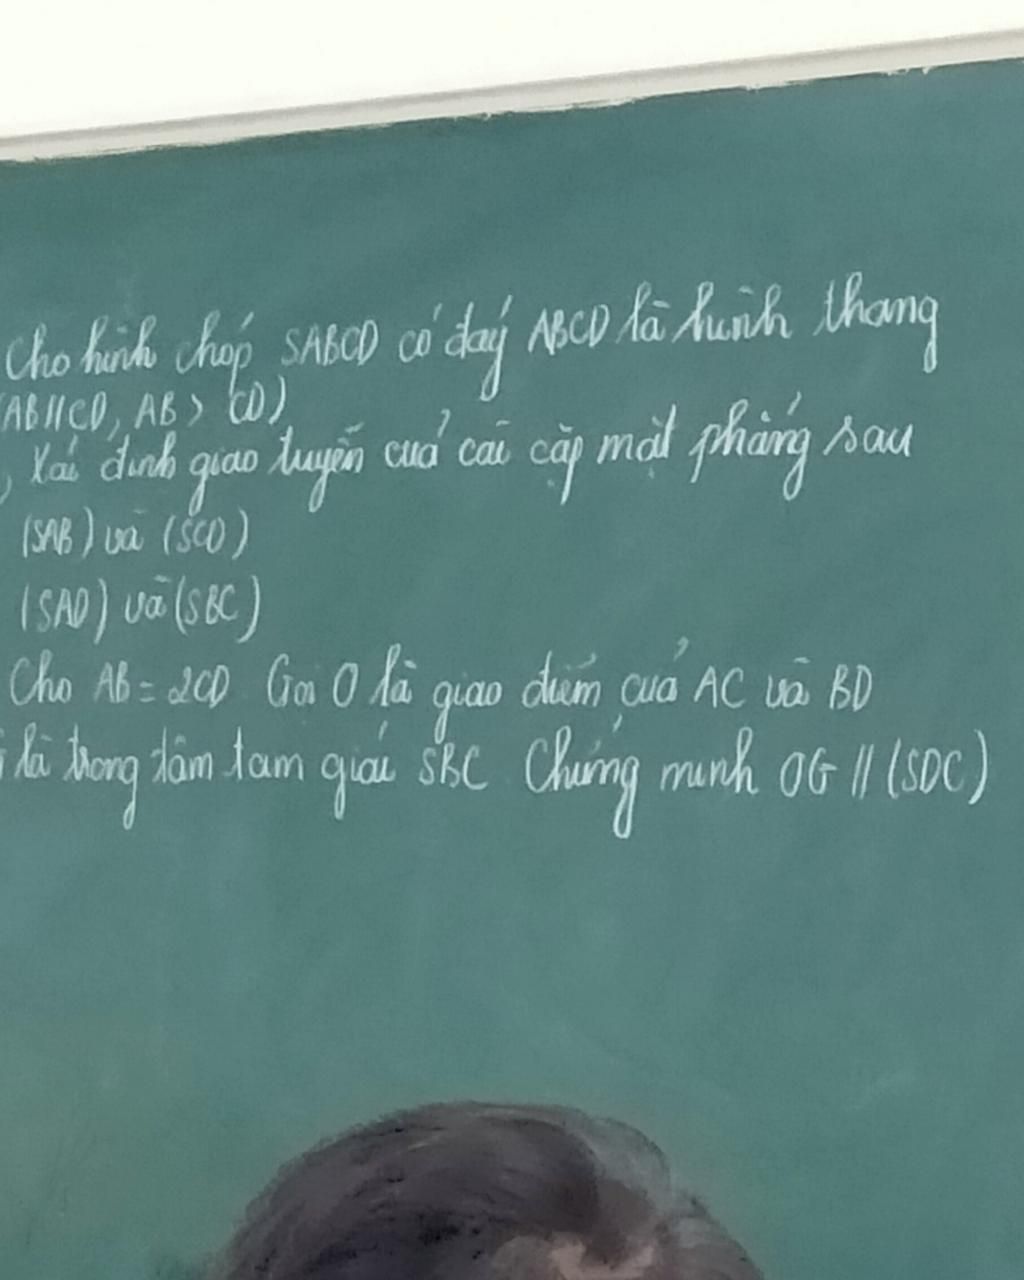 Cho hình chóp SABCD có đáy ABCD là hình thang
(AB//CD, AB > CD)
, Xác định giao tuyến của các cặp mặt phẳng sau
(SAB) và (SCD)
(SAD) và (SBC)
Cho AB = 2CD Gọi O là giao điểm của AC và BD
là trọng tâm tam giác SBC Chứng minh OG // (SDC)